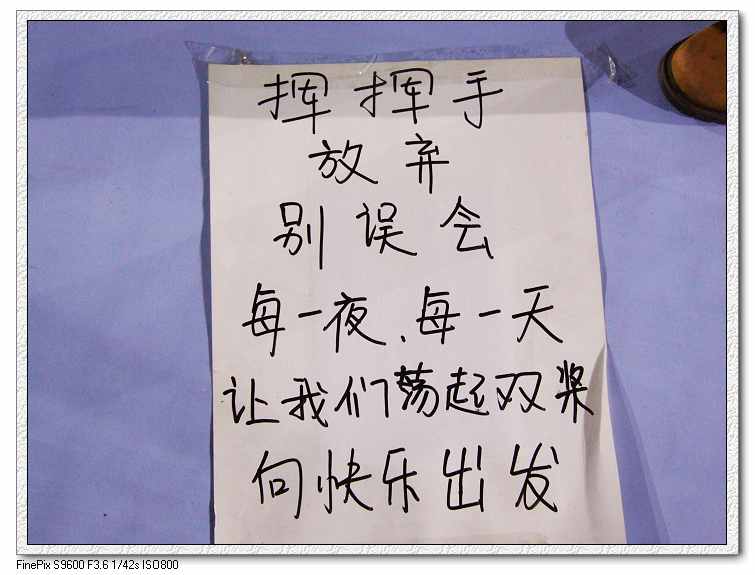 挥挥手
放弃
别误会
每一夜、每一天
让我们荡起双桨
向快乐出发
FinePix S9600 F3.6 1/42s ISO800